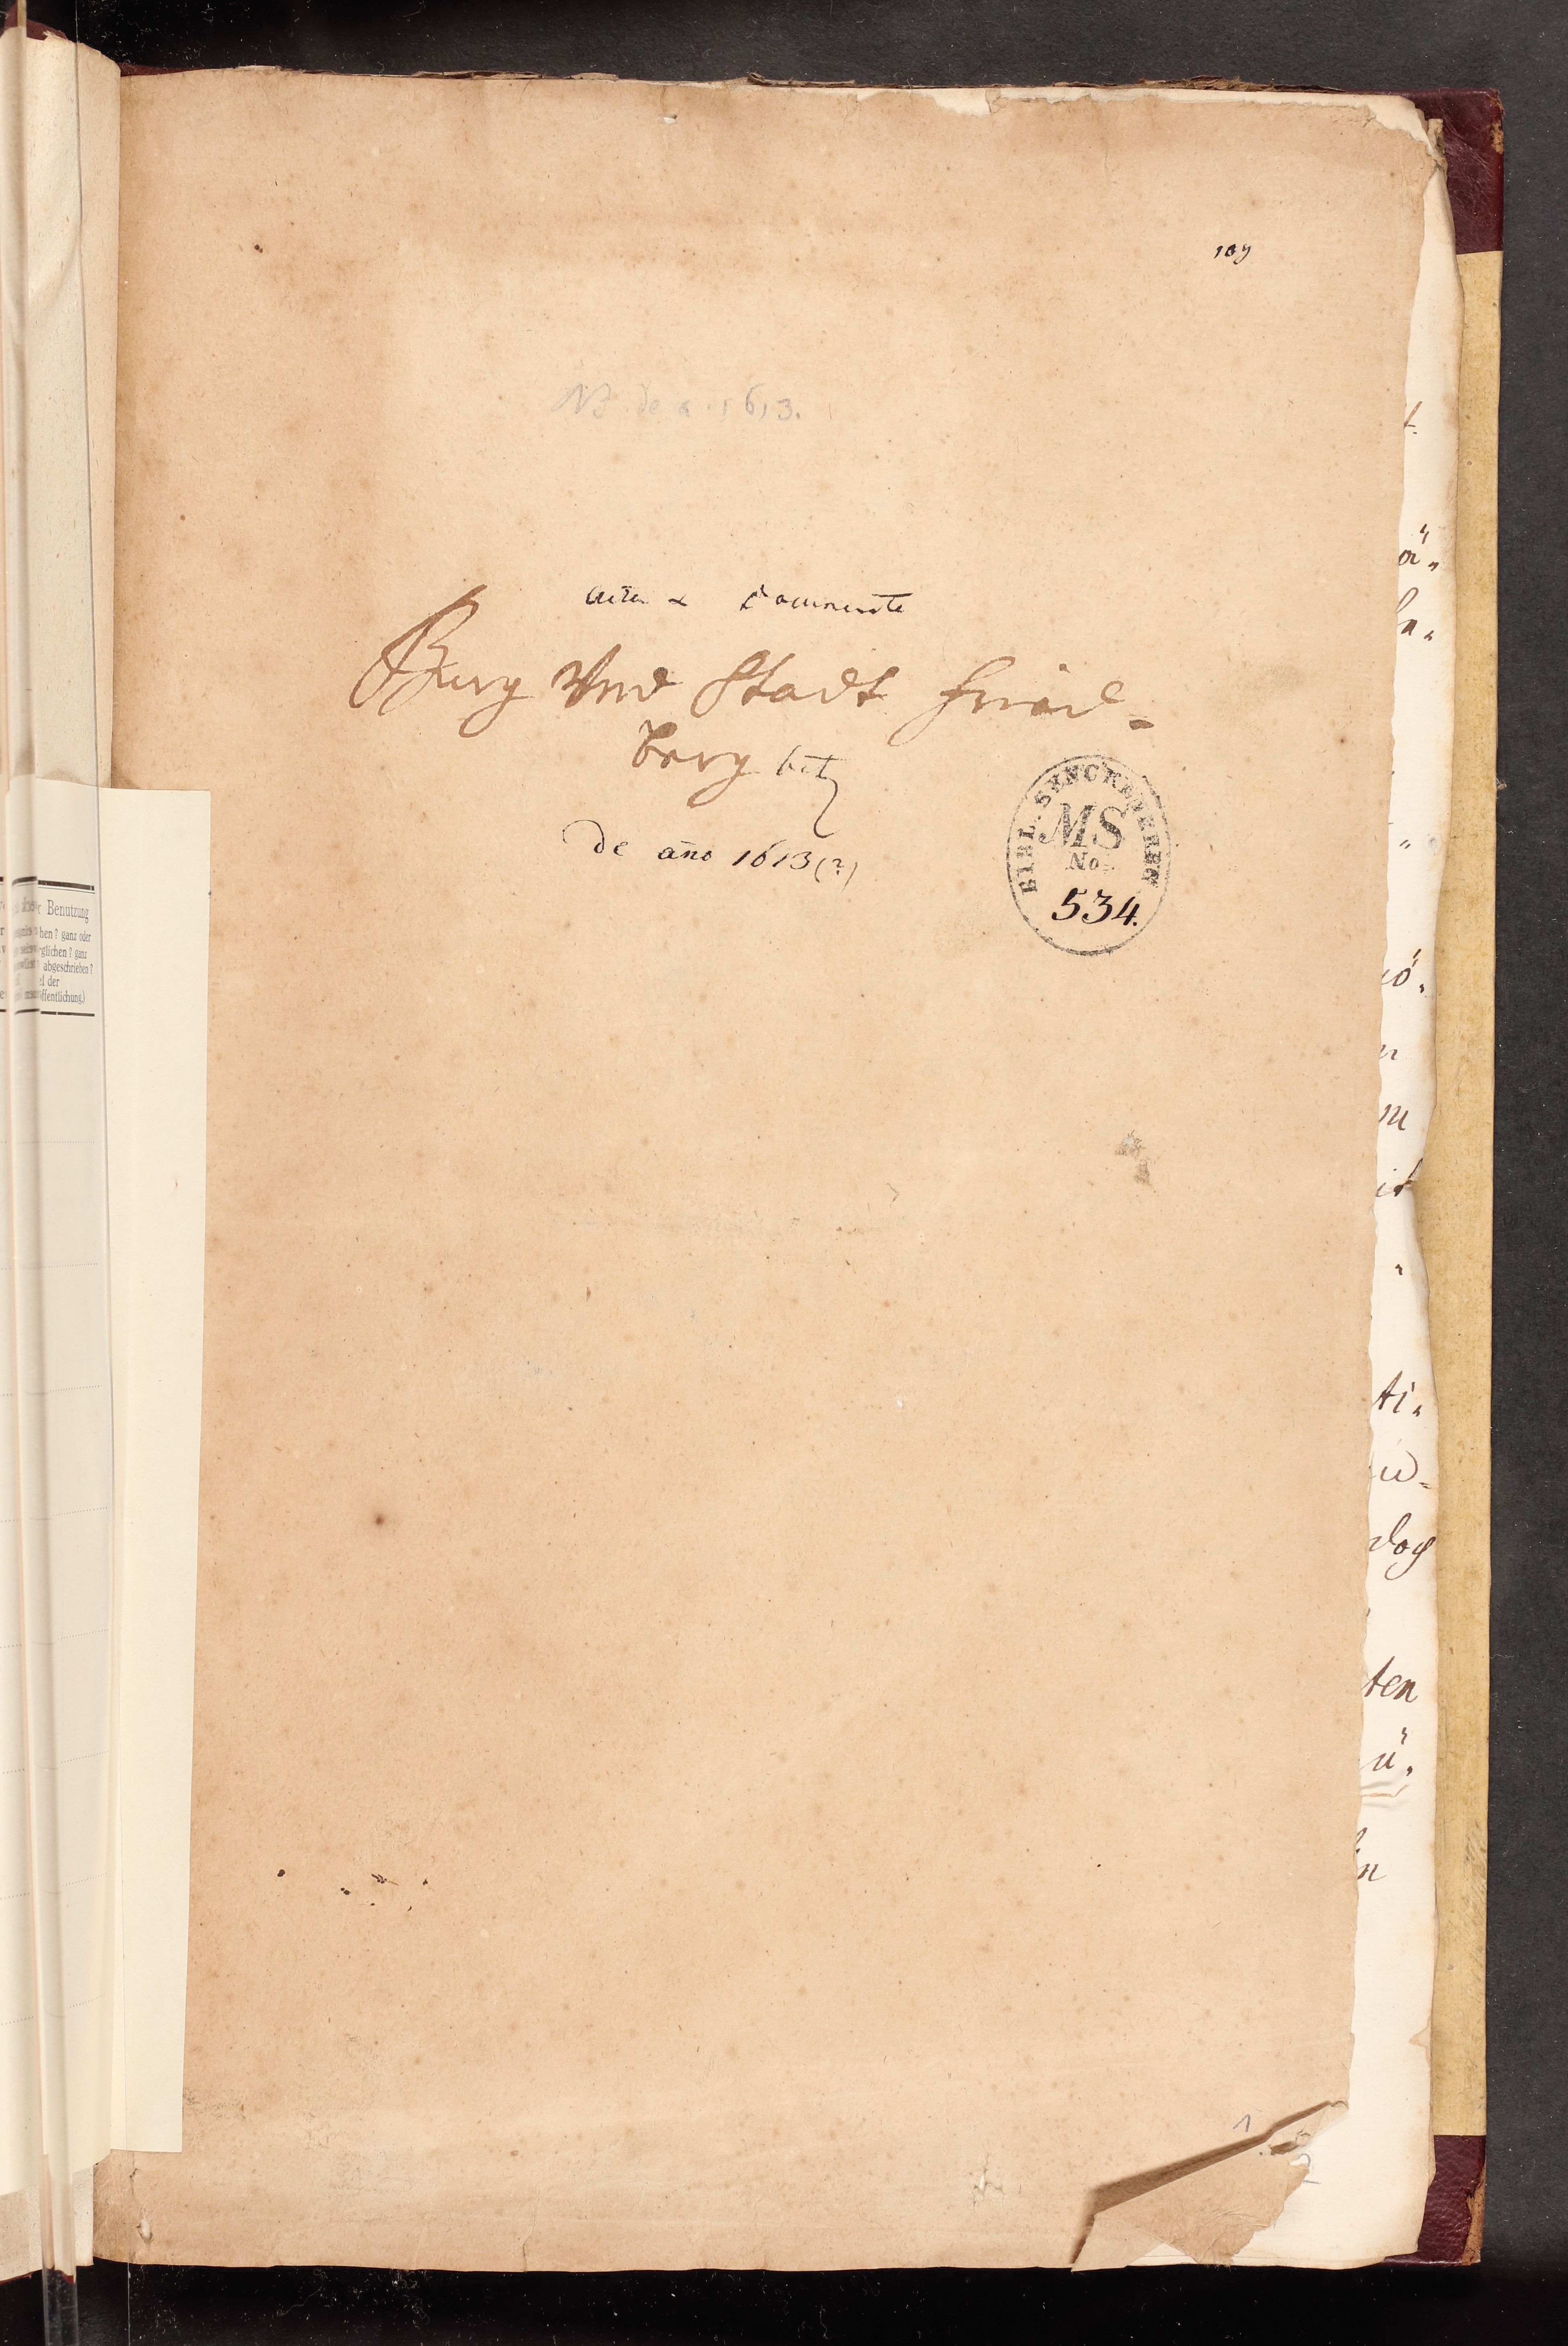 109
NB. de a. 1613.
Acta & Documenta
Burg Vnd Stadt Fried-
berg betr
de año 1613 (?)
BIBL. SENCKENBERG
MS
No.
534.
r Benutzung
hen? ganz oder
glichen? ganz
abgeschrieben?
el der
ffentlichung.)
ten
1